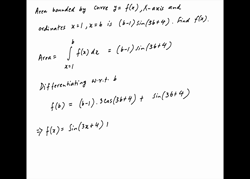 Area bounded by curve y = f(x), x-axis and
ordinates x=1, x=b is (b-1) sin(3b+4). Find f(x).
Area = ∫ f(x) dx = (b-1) sin(3b+4)
b
x=1
Differentiating w.r.t b
f(b) = (b-1) . 3cos(3b+4) + sin(3b+4)
⇒ f(x) = Sin(3x+4) +